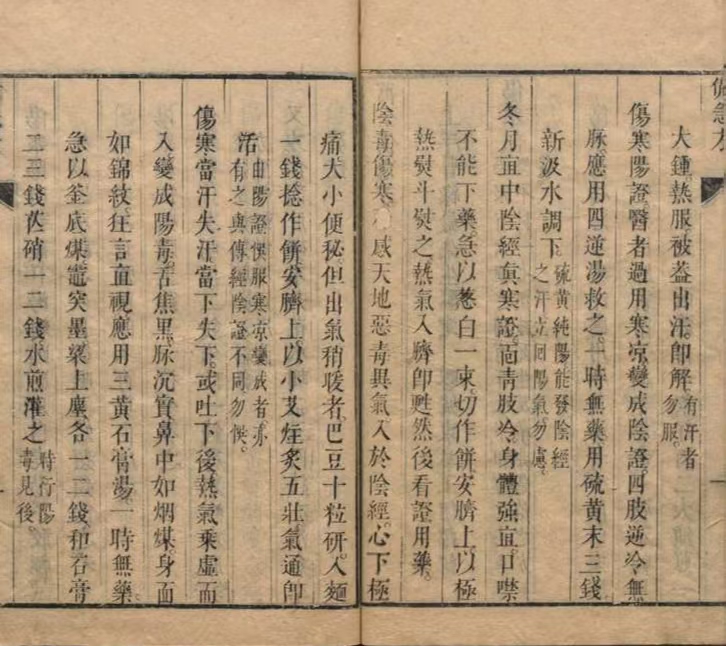 備急方
大鍾熱服被葢出汗卽解有汗者勿服
傷寒陽證醫者過用寒凉變成陰證四肢逆冷無
脉應用四逆湯救之一時無藥用硫黄末三錢
新汲水調下硫黄純陽能發陰經之汗立囘陽氣勿慮
冬月直中陰經眞寒證面青肢冷身體強直口噤
不能下藥急以葱白一束切作餅安臍上以極
熱熨斗熨之熱氣入臍卽甦然後看證用藥
陰毒傷寒感天地惡毒異氣入於陰經心下極
痛大小便秘但出氣稍暖者巴豆十粒研入麵
一錢捻作餅安臍上以小艾炷炙五壯氣通卽
活由陽證悞服寒凉變成者亦有之與傳經陰證不同勿悞
傷寒當汗失汗當下失下或吐下後熱氣乘虛而
入變成陽毒舌焦黑脉沉實鼻中如烟煤身面
如錦紋狂言直視應用三黄石膏湯一時無藥
急以釜底煤竈突墨梁上塵各一二錢和石膏
二三錢芒硝一二錢水煎灌之特行陽毒見後